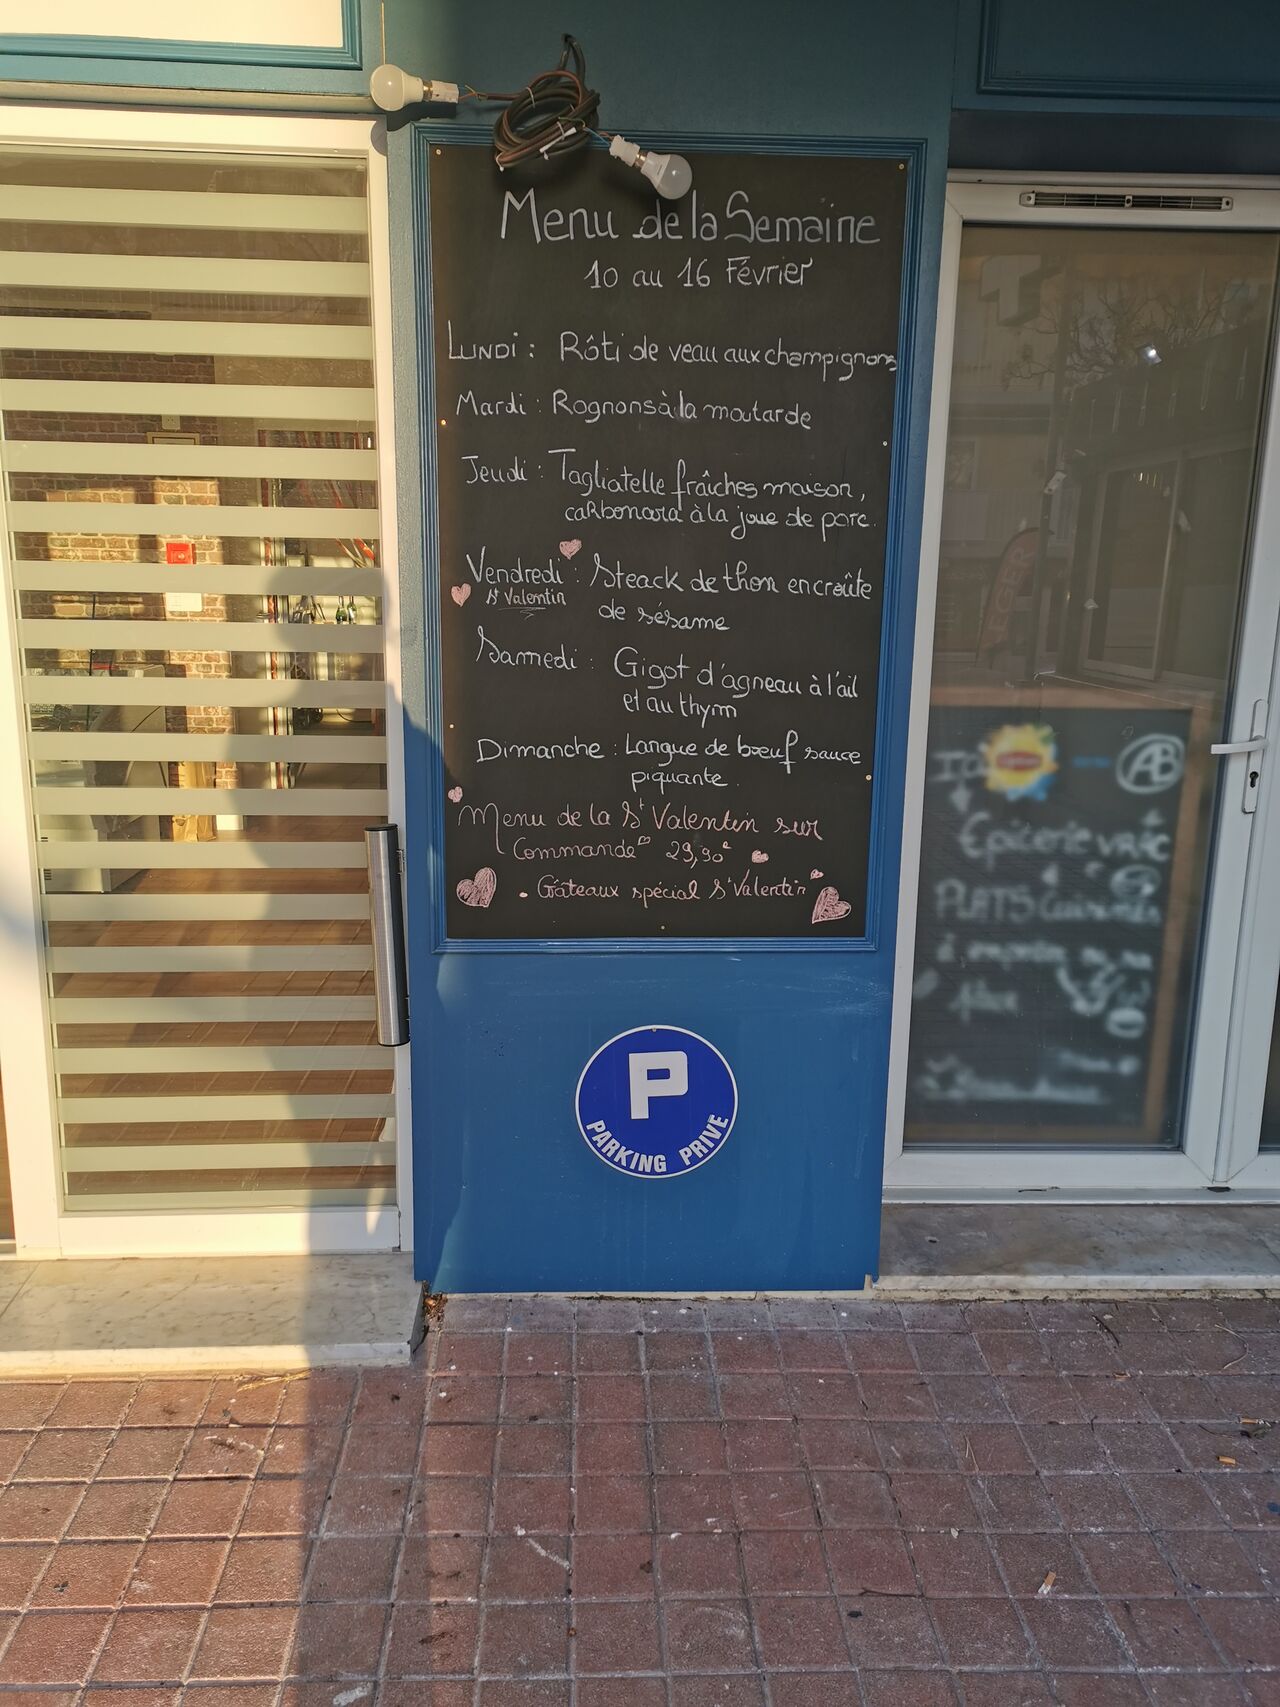 Menu de la Semaine
10 au 16 Février
LUNDI : Rôti de veau aux champignons
Mardi : Rognons à la moutarde
Jeudi : Tagliatelle fraîches maison,
carbonara à la joue de porc.
Vendredi : Steack de thon en croûte
St Valentin
de sésame
Samedi : Gigot d'agneau à l'ail
et au thym
Dimanche : Langue de bœuf sauce
piquante.
Menu de la St Valentin sur
Commande 29,90€
. Gâteaux spécial St Valentin
P
PARKING PRIVÉ
AB
Epicerie vrac
PLATS Cuisinés
à emporter ou sur
place